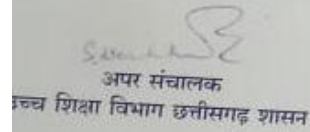 अपर संचालक
उच्च शिक्षा विभाग छत्तीसगढ़ शासन